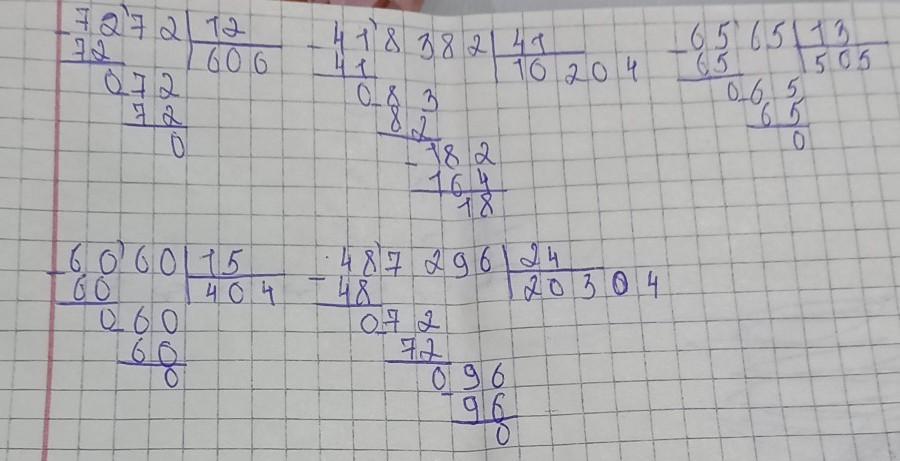 -72'72 12
72 606
072
72
0
-41'8 382 41
41 10 204
0 83
82
-182
164
18
-65'65 13
65 505
065
65
0
-60'60 15
60 404
060
60
0
-48'7 296 24
48 20304
072
72
096
96
0